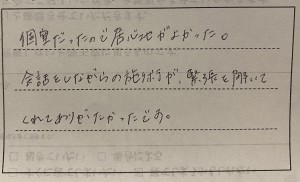 個室だったので居心地がよかった。
会話をしながらの施術が、緊張を解いて
くれてありがたかったです。